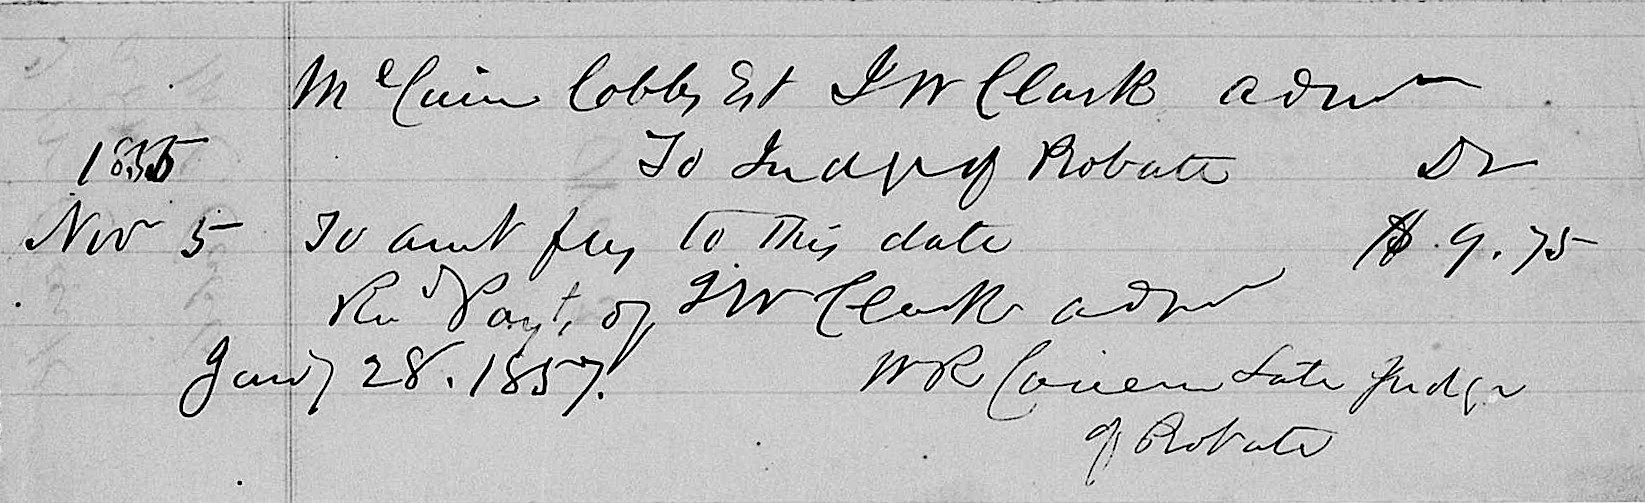 McCuin Cobbs Est J W Clark admr
1855 To Judge of Probate Dr
Nov 5 To amt fees to this date $ 9.75
Recd Payt, of J W Clark admr
Jany 28. 1857. W R Late Judge
of Probate